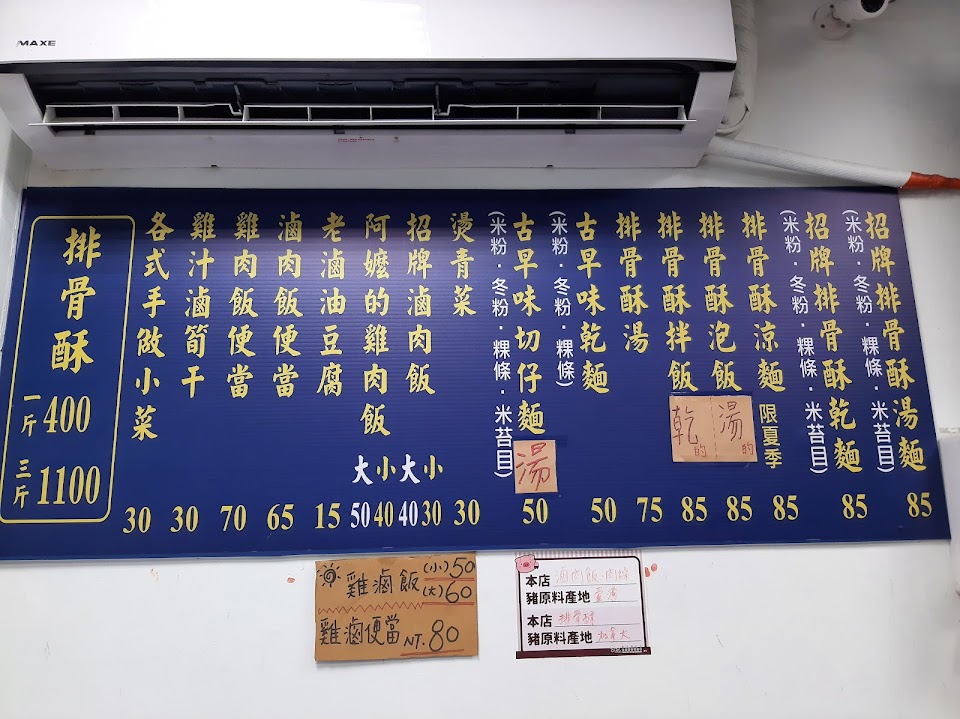 MAXE
招牌排骨酥湯麵
(米粉·冬粉·粿條·米苔目)
85
招牌排骨酥乾麵
(米粉·冬粉·粿條·米苔目)
85
排骨酥涼麵
限夏季
85
排骨酥泡飯
湯的
85
排骨酥拌飯
乾的
85
排骨酥湯
75
古早味乾麵
(米粉·冬粉·粿條)
50
古早味切仔麵
湯
(米粉·冬粉·粿條·米苔目)
50
燙青菜
30
招牌滷肉飯
大小
40 30
阿嬤的雞肉飯
大小
50 40
老滷油豆腐
15
滷肉飯便當
65
雞肉飯便當
70
雞汁滷筍干
30
各式手做小菜
30
排骨酥
一斤400
三斤1100
雞滷飯 (小)50
(大)60
雞滷便當 NT.80
本店 滷肉飯.肉燥
豬原料產地 臺灣
本店 排骨酥
豬原料產地 加拿大